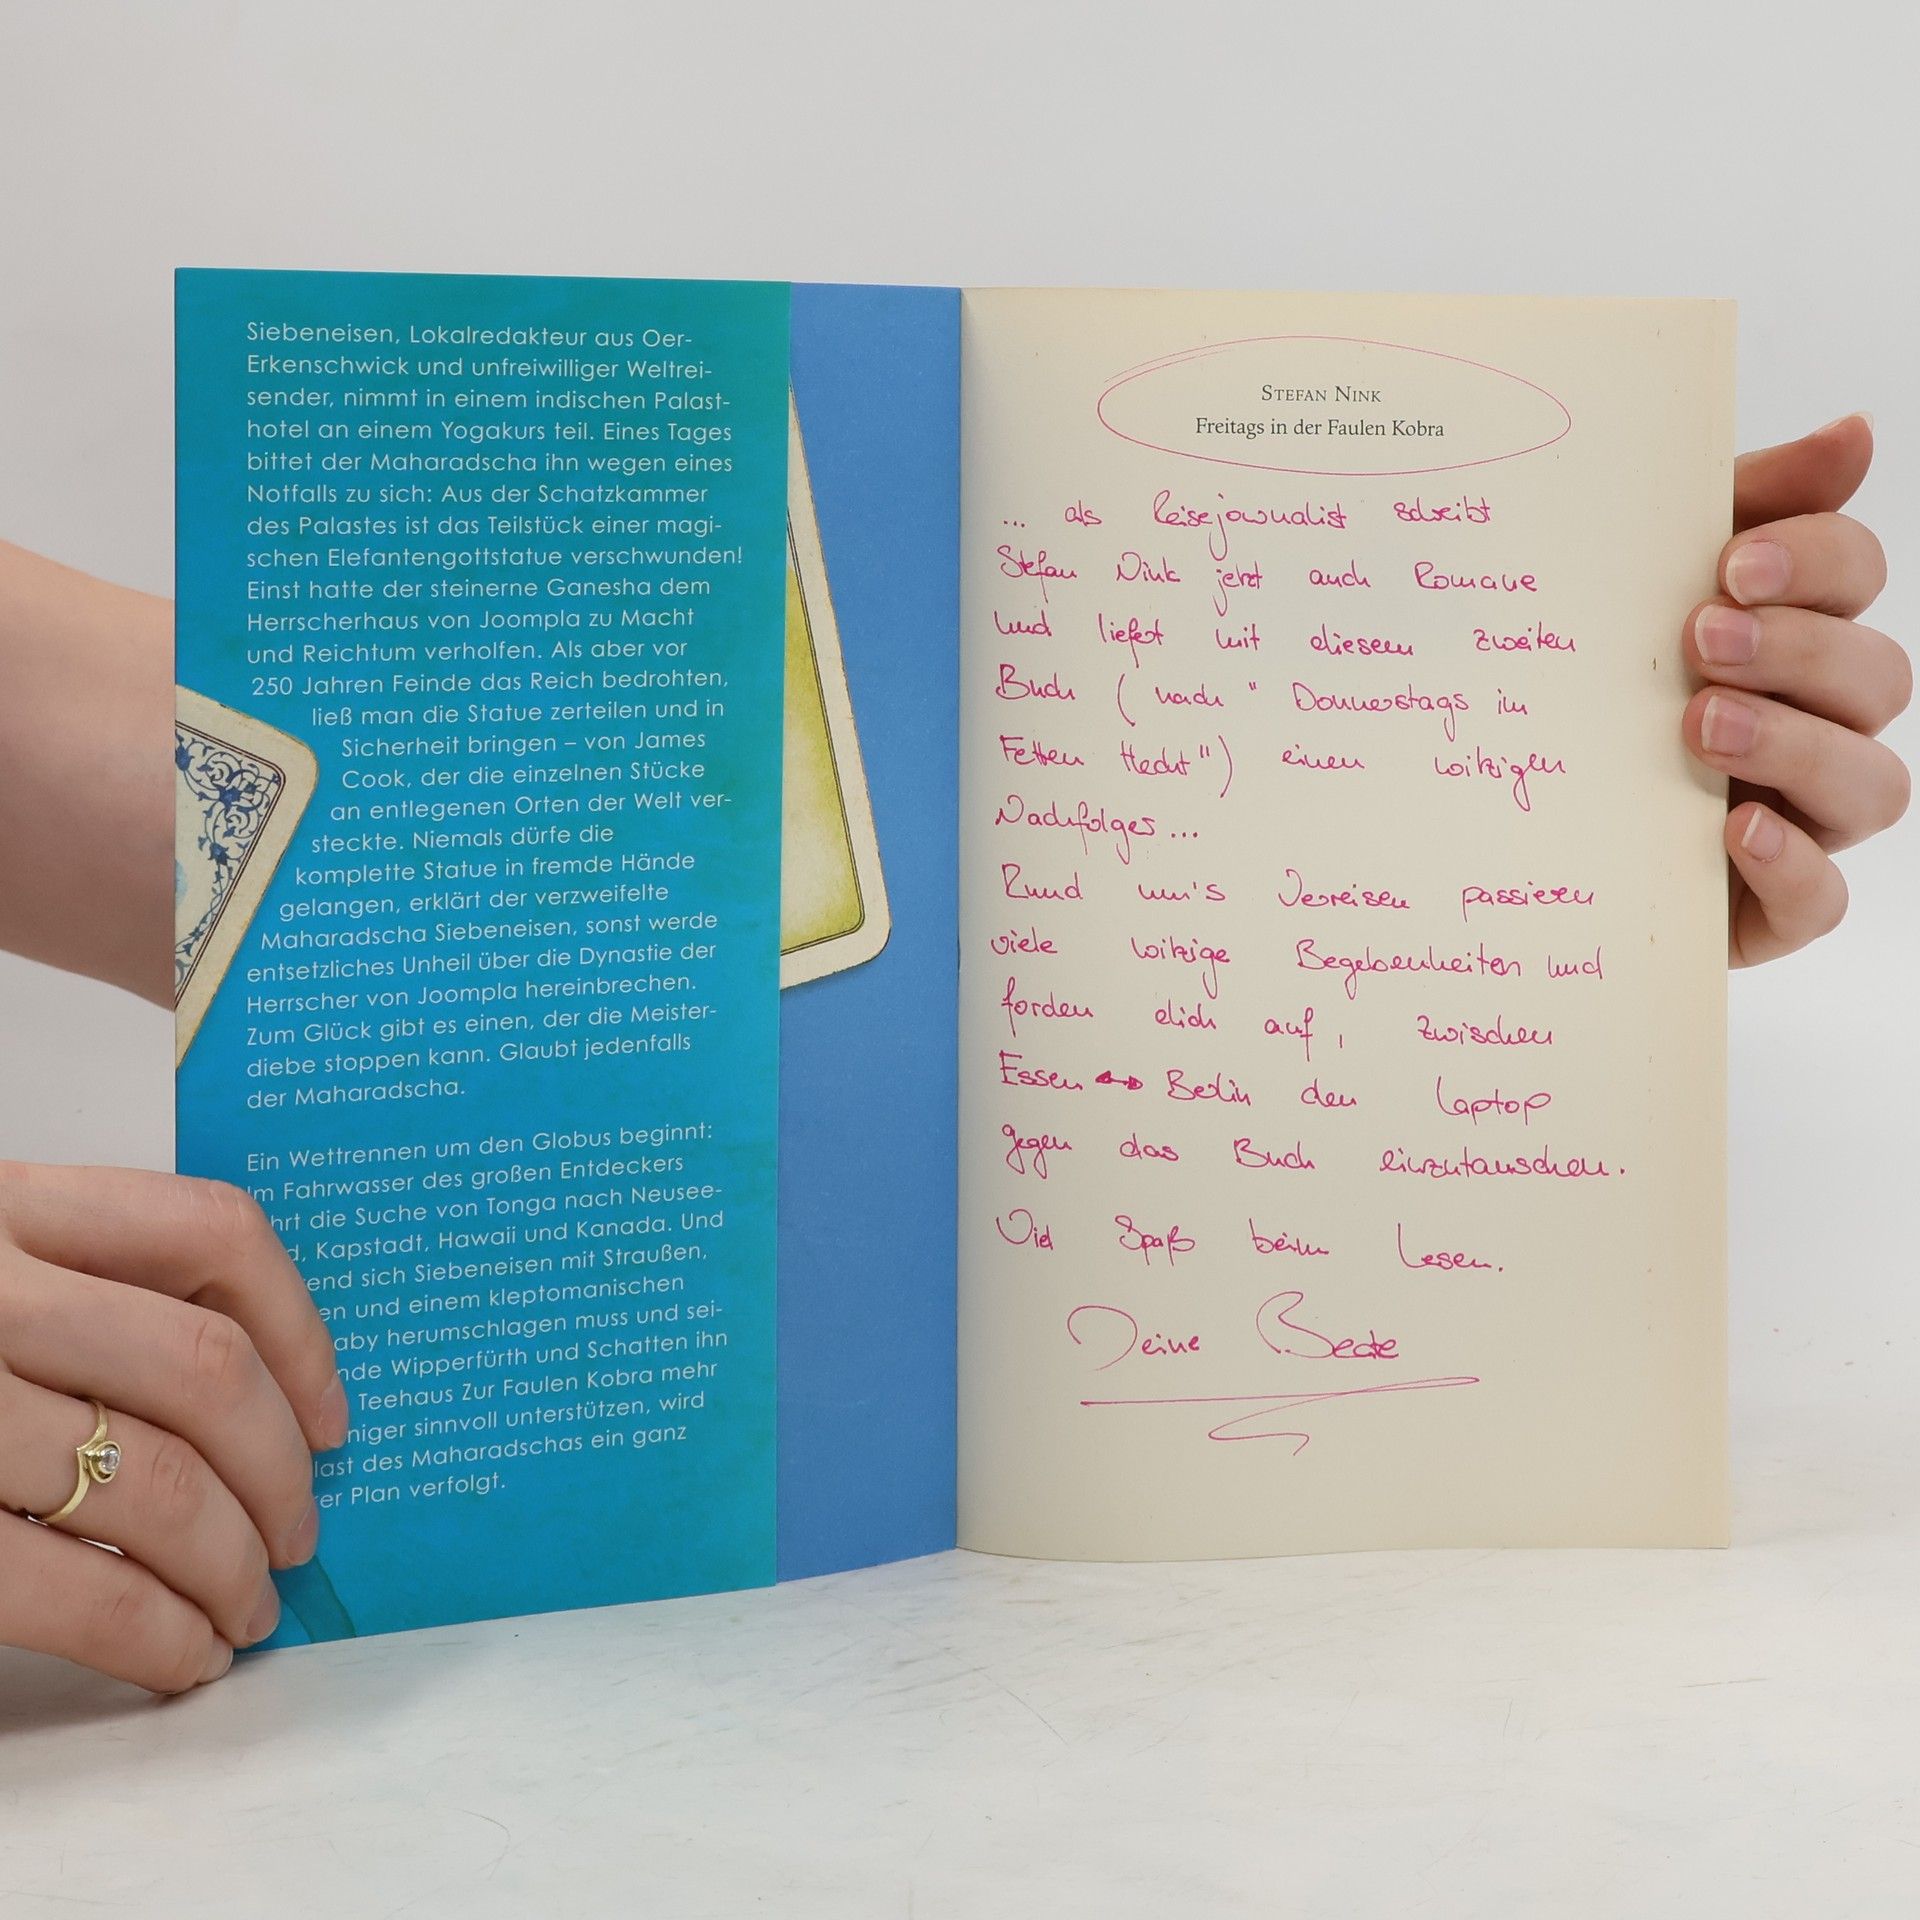 Siebeneisen, Lokalredakteur aus Oer-
Erkenschwick und unfreiwilliger Weltrei-
sender, nimmt in einem indischen Palast-
hotel an einem Yogakurs teil. Eines Tages
bittet der Maharadscha ihn wegen eines
Notfalls zu sich: Aus der Schatzkammer
des Palastes ist das Teilstück einer magi-
schen Elefantengottstatue verschwunden!
Einst hatte der steinerne Ganesha dem
Herrscherhaus von Joompla zu Macht
und Reichtum verholfen. Als aber vor
250 Jahren Feinde das Reich bedrohten,
ließ man die Statue zerteilen und in
Sicherheit bringen – von James
Cook, der die einzelnen Stücke
an entlegenen Orten der Welt ver-
steckte. Niemals dürfe die
komplette Statue in fremde Hände
gelangen, erklärt der verzweifelte
Maharadscha Siebeneisen, sonst werde
entsetzliches Unheil über die Dynastie der
Herrscher von Joompla hereinbrechen.
Zum Glück gibt es einen, der die Meister-
diebe stoppen kann. Glaubt jedenfalls
der Maharadscha.
Ein Wettrennen um den Globus beginnt:
Im Fahrwasser des großen Entdeckers
hrt die Suche von Tonga nach Neusee-
d, Kapstadt, Hawaii und Kanada. Und
end sich Siebeneisen mit Straußen,
en und einem kleptomanischen
aby herumschlagen muss und sei-
nde Wipperfürth und Schatten ihn
Teehaus Zur Faulen Kobra mehr
niger sinnvoll unterstützen, wird
last des Maharadschas ein ganz
rer Plan verfolgt.
STEFAN NINK
Freitags in der Faulen Kobra
... als Reisejournalist schreibt
Stefan Nink jetzt auch Romane
und liefert mit diesem zweiten
Buch (nach "Donnerstags im
Fetten Hecht") einen witzigen
Nachfolger...
Rund um's Verreisen passieren
viele witzige Begebenheiten und
forden dich auf, zwischen
Essen ↔ Berlin den Laptop
gegen das Buch einzutauschen.
Viel Spaß beim Lesen.
Deine Beate